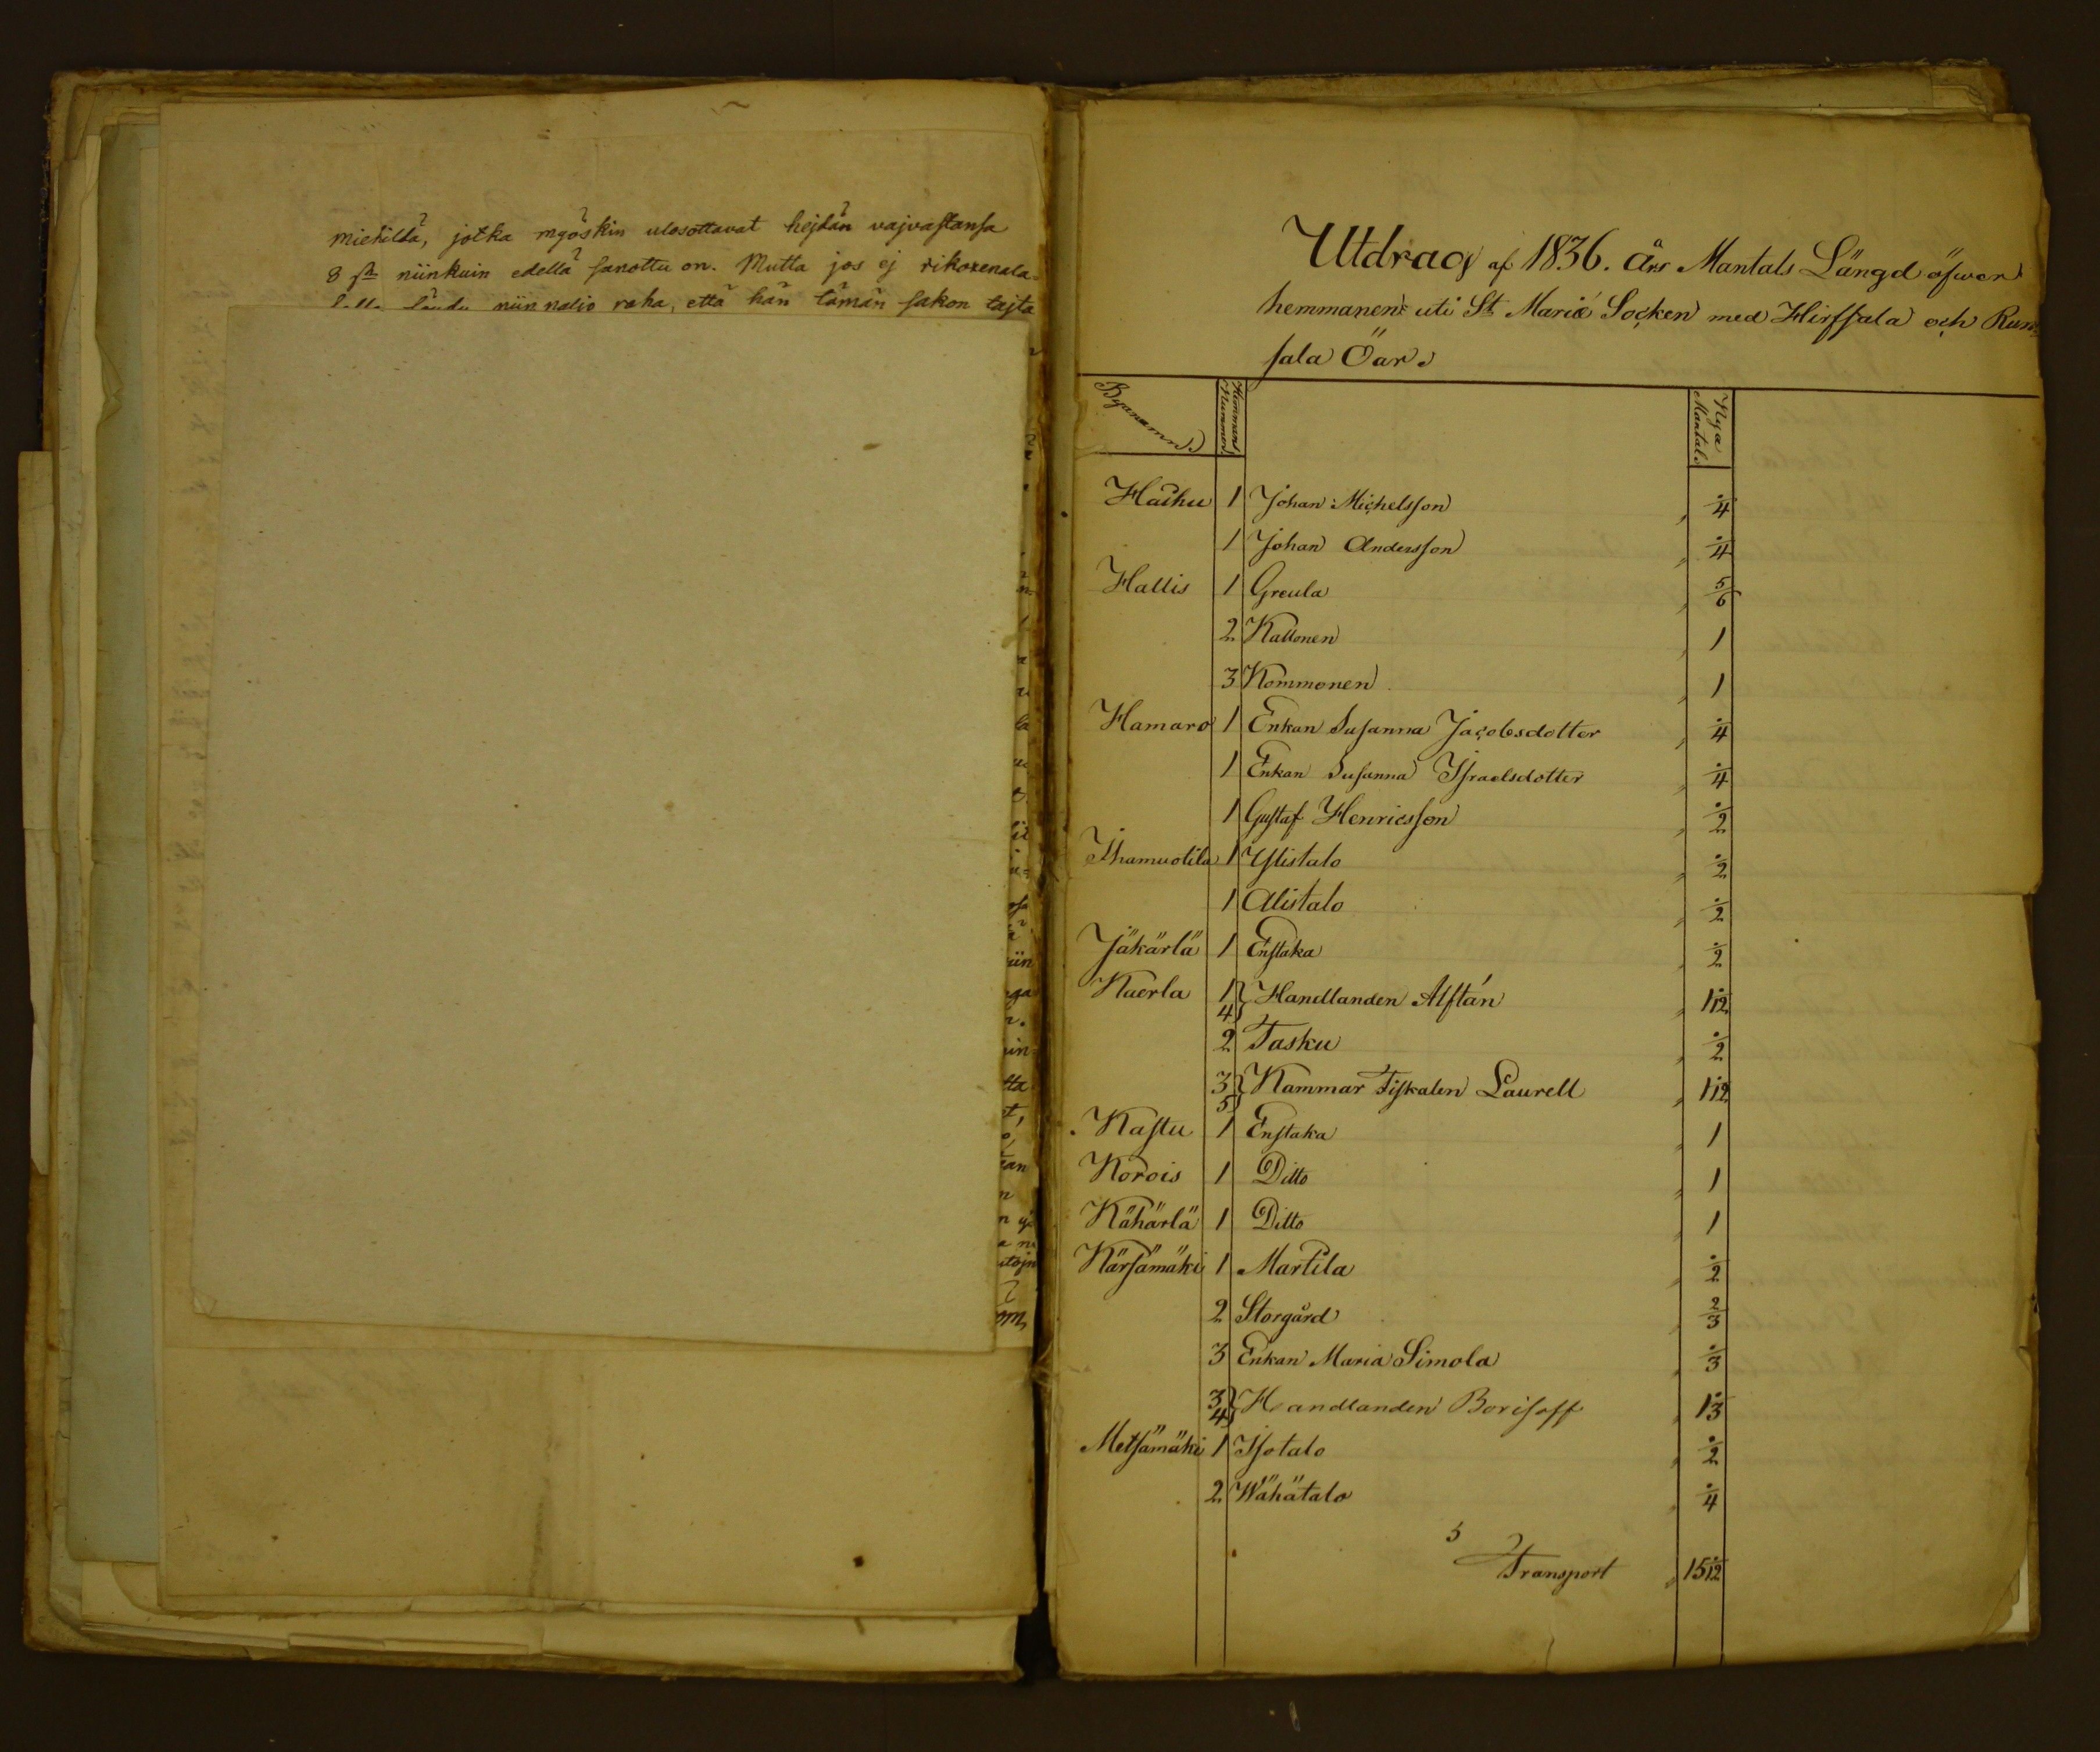 miehildä, jotka myöskin ulosottavat hejdän vajvastansa
8 sk niinkuin edellä sanottu on. Mutta jos ej rikoxenala-
niin nalio raha, että hän tämän sakon tajta
Utdrag af 1836. års Mantals Längd öfwer
hemmanen uti St Mariæ Socken med Hirssala och Run-
sala Öar.
Byanamn. Hemmans Nummer. Nya Mantal.
Haihu 1 Johan Michelsson ¼
1 Johan Andersson ¼
Hallis 1 Greula 5/6
2 Kallonen 1
3 Kommonen 1
Hamaro 1 Enkan Susanna Jacobsdotter ¼
1 Enkan Susanna Israelsdotter ¼
1 Gustaf Henricsson ½
Ihamuotila 1 Ylistalo ½
1 Alistalo ½
Jäkärlä 1 Enstaka ½
Kaerla 1 4 Handlanden Alftán 1 1/12
2 Tasku ½
3 5 Kammar Fiskalen Laurell 1 1/12
Kastu 1 Enstaka 1
Korois 1 Ditto 1
Kähärlä 1 Ditto 1
Kärsämäki 1 Martila ½
2 Storgård 2/3
3 Enkan Maria Simola 1/3
3 4 Handlanden Borisoff 1 1/3
Metsämäki 1 Isotalo ½
2 Wähätalo ¼
Transport 15 1/12